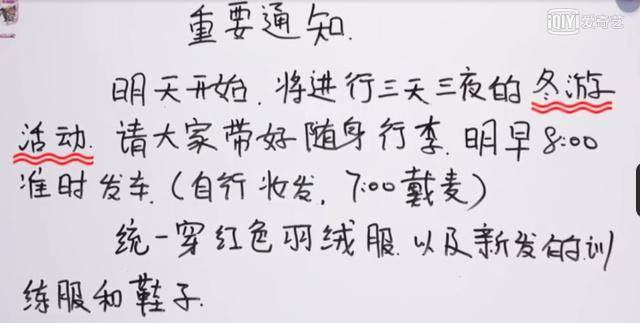 重要通知.
iQIYI 爱奇艺
明天开始.将进行三天三夜的冬游
活动.请大家带好随身行李.明早8:00
准时发车.(自行妆发,7:00戴麦)
统一穿红色羽绒服.以及新发的训
练服和鞋子.